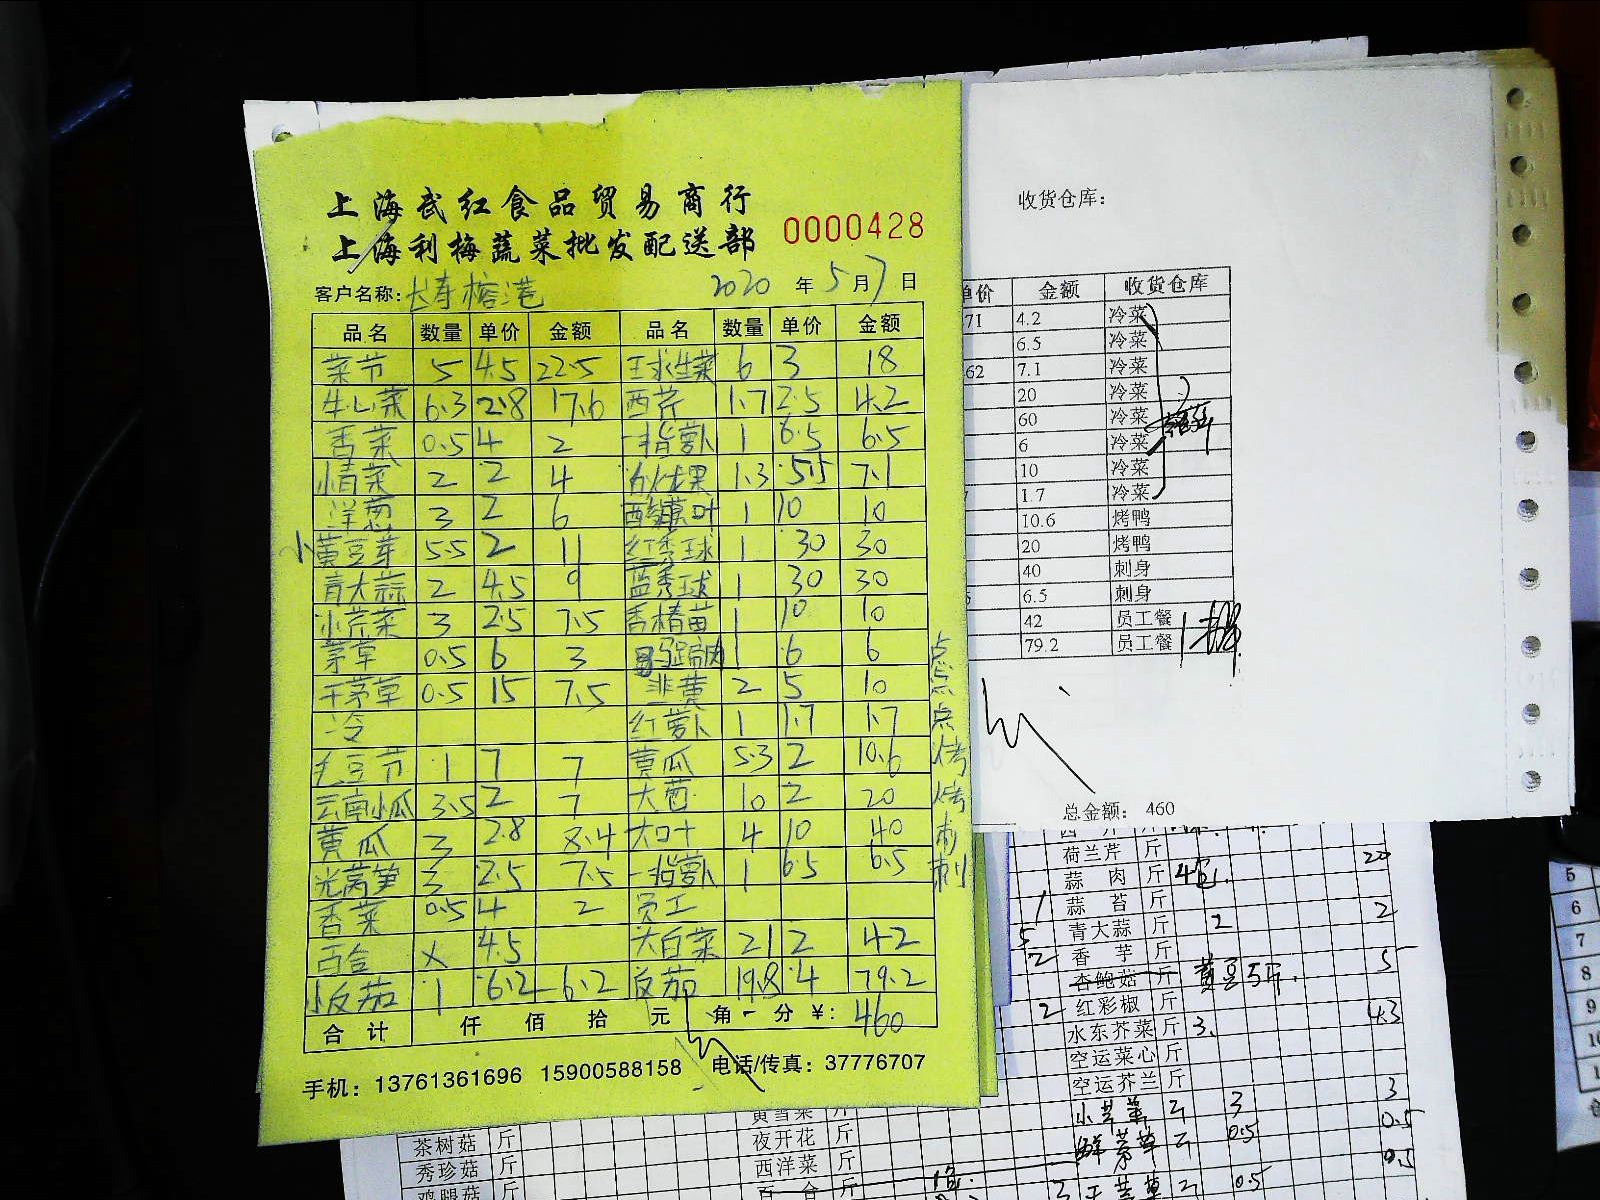 上海武红食品贸易商行
上海利梅蔬菜批发配送部 0000428
客户名称: 长寿榕港 2020 年 5 月 7 日
品名 数量 单价 金额 品名 数量 单价 金额
菜节 5 4.5 22.5 王求生菜 6 3 18
牛心菜 6.3 2.8 17.6 西芹 1.7 2.5 4.2
香菜 0.5 4 2 一指萝卜 1 6.5 6.5
情菜 2 2 4 1.3 5.5 7.1
洋葱 3 2 6 叶 1 10 10
小黄豆芽 5.5 2 11 红秀球 1 30 30
青大蒜 2 4.5 9 蓝秀球 1 30 30
小芹菜 3 2.5 7.5 香椿苗 1 10 10
茅草 0.5 6 3 1 6 6 点
干茅草 0.5 15 7.5 韭黄 2 5 10 点
冷 红萝卜 1 1.7 1.7 点
毛豆节 1 7 7 黄瓜 5.3 2 10.6 烤
云南小瓜 3.5 2 7 大葱 10 2 20 烤
黄瓜 3 2.8 8.4 大口十 4 10 40 刺
光莴笋 3 2.5 7.5 一指萝卜 1 6.5 6.5 刺
香菜 0.5 4 2 员工
百合 x 4.5 大白菜 21 2 42
小反茄 1 6.2 6.2 反茄 19.8 4 79.2
合计 仟 佰 拾 元 角 一 分 ¥: 460
手机: 13761361696 15900588158 电话/传真: 37776707
收货仓库:
单价 金额 收货仓库
71 4.2 冷菜
6.5 冷菜
62 7.1 冷菜
20 冷菜
60 冷菜
6 冷菜
10 冷菜
1.7 冷菜
10.6 烤鸭
20 烤鸭
40 刺身
6.5 刺身
42 员工餐
79.2 员工餐
总金额: 460
荷兰芹 斤 20
蒜肉 斤 4包.
1 蒜苔 斤
5 青大蒜 斤 2 2
2 香芋 斤
杏鲍菇 斤 黄豆5斤. 5
2 红彩椒 斤
水东芥菜 斤 3. 43
空运菜心 斤
空运芥兰 斤 3
小芹菜 斤 3 0.5
鲜茅草 斤 0.5 0.5
干茅草 斤 0.5
茶树菇 斤
秀珍菇 斤
鸡腿菇 斤
黄雪菜 斤
夜开花 斤
西洋菜 斤
百合 斤
5
6
7
8
9
10